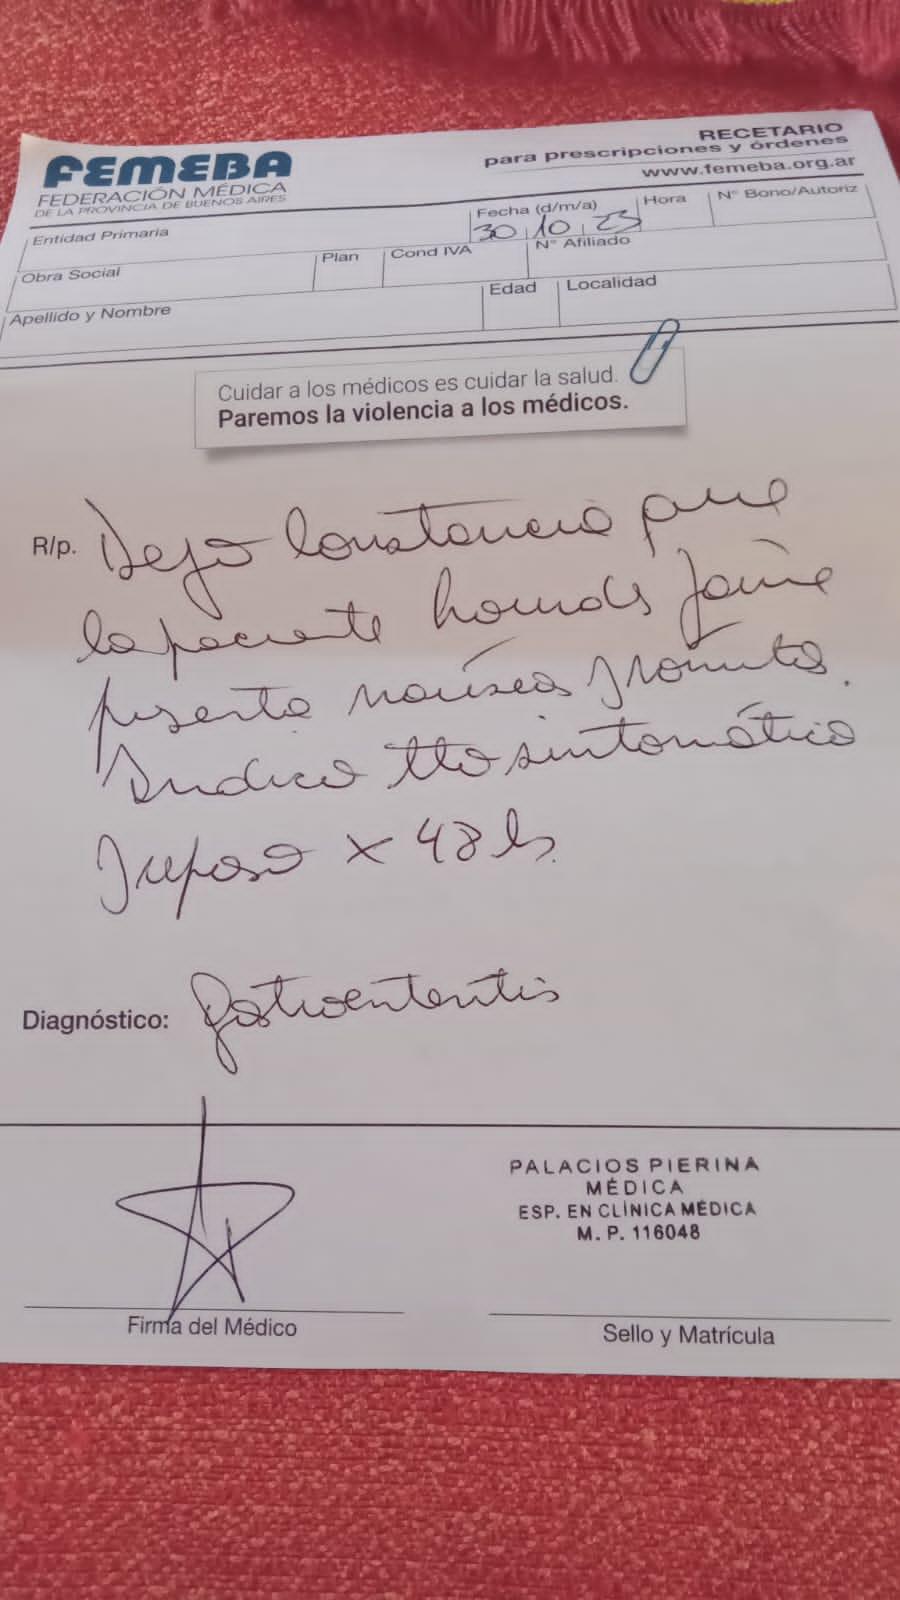 FEMEBA
FEDERACIÓN MÉDICA
DE LA PROVINCIA DE BUENOS AIRES
RECETARIO
para prescripciones y órdenes
www.femeba.org.ar
Entidad Primaria
Fecha (d/m/a)
30 10 23
Hora
N° Bono/Autoriz
Obra Social
Plan
Cond IVA
N° Afiliado
Apellido y Nombre
Edad
Localidad
Cuidar a los médicos es cuidar la salud.
Paremos la violencia a los médicos.
R/p. Dejo constancia que
la paciente
presenta náuseas y vómitos.
Indico tto sintomático
y reposo x 48 hs.
Diagnóstico: Gastroenteritis
PALACIOS PIERINA
MÉDICA
ESP. EN CLÍNICA MÉDICA
M. P. 116048
Firma del Médico
Sello y Matrícula